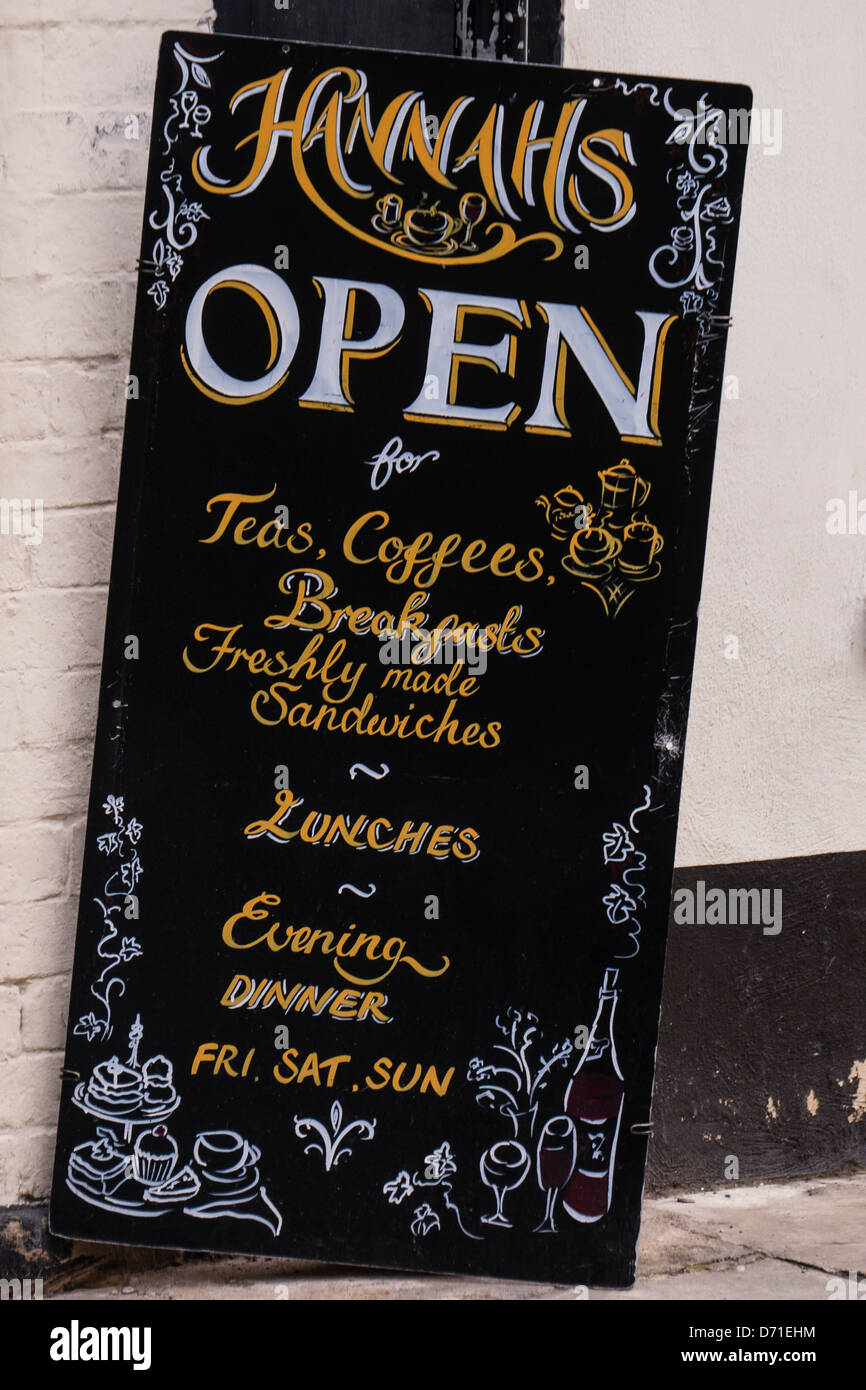 HANNAHS
OPEN
for
Teas, Coffees,
Breakfasts
Freshly made
Sandwiches
~
LUNCHES
~
Evening
DINNER
FRI. SAT, SUN
alamy
alamy
Image ID: D71EHM
www.alamy.com